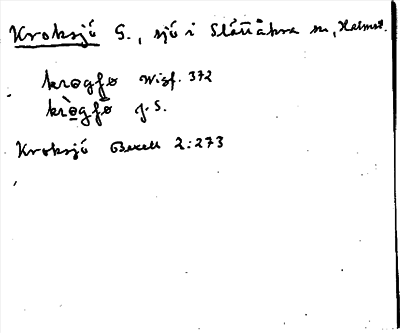 Kroksjö S., sjö i Slättåkra sn, Halmst.
krogfø Wigf. 372
kròg̱fø̄ g. S.
Kroksjö Bexell 2:273